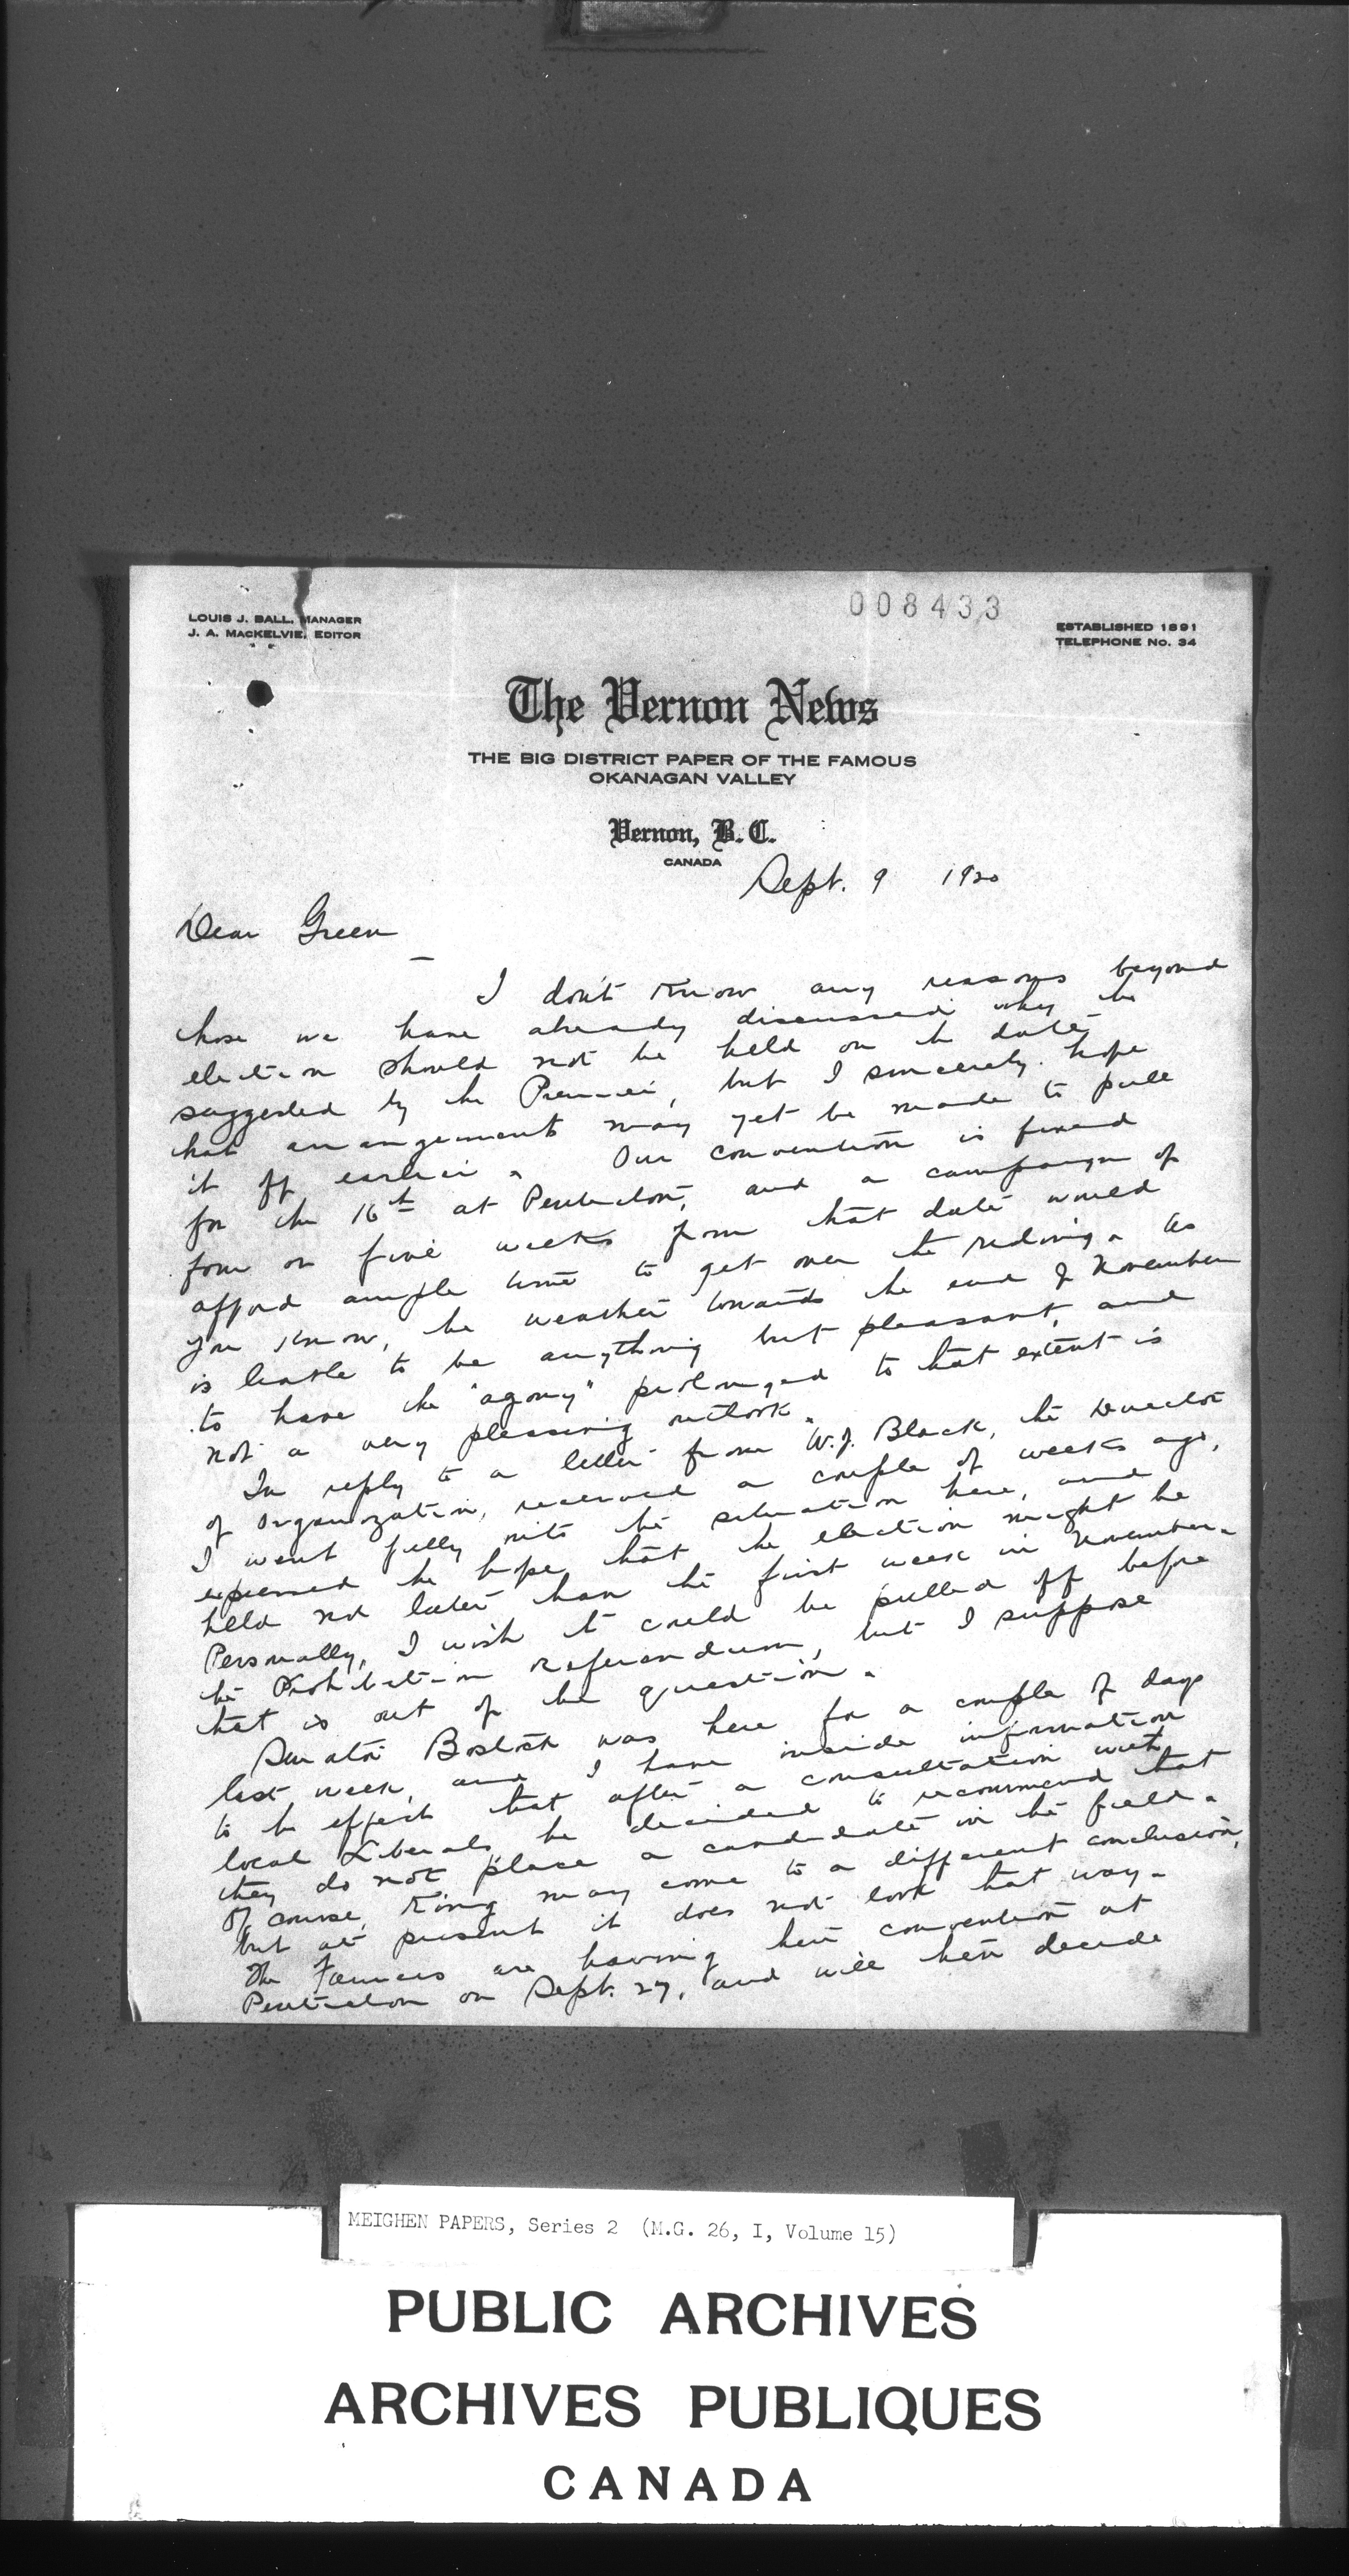 008433
LOUIS J. BALL, MANAGER
J. A. MACKELVIE, EDITOR
ESTABLISHED 1891
TELEPHONE No. 34
The Vernon News
THE BIG DISTRICT PAPER OF THE FAMOUS
OKANAGAN VALLEY
Vernon, B. C.
CANADA
Sept. 9 1920
Dear Green
— I don't know any reasons beyond
those we have already discussed why the
election should not be held on the date
suggested by the Premier, but I sincerely hope
that arrangements may yet be made to pull
it off earlier. Our convention is fixed
for the 16th at Penticton, and a campaign of
four or five weeks from that date would
afford ample time to get over the riding. As
you know, the weather towards the end of November
is liable to be anything but pleasant, and
to have the "agony" prolonged to that extent is
not a very pleasing outlook.
In reply to a letter from W.J. Black, the Director
of Organization, received a couple of weeks ago,
I went fully into the situation here, and
expressed the hope that the election might be
held not later than the first week in November.
Personally, I wish it could be pulled off before
the Prohibition Referendum, but I suppose
that is out of the question.
Senator Bostock was here for a couple of days
last week, and I have inside information
to the effect that after a consultation with
local Liberals he decided to recommend that
they do not place a candidate in the field.
Of course, King may come to a different conclusion,
but at present it does not look that way.
The Farmers are having their convention at
Penticton on Sept. 27, and will then decide
MEIGHEN PAPERS, Series 2 (M.G. 26, I, Volume 15)
PUBLIC ARCHIVES
ARCHIVES PUBLIQUES
CANADA